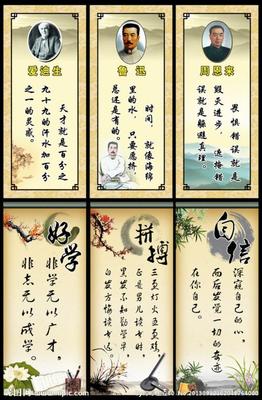 爱迪生
天才就是百分之
九十九的汗水加百分
之一的灵感。
鲁迅
时间，就像海绵
里的水，只要愿挤，
总还是有的。
周恩来
畏惧错误就是
毁灭进步，逃避错
误就是躲避真理。
好学
非学无以广才，
非志无以成学。
拼搏
三更灯火五更鸡
正是男儿读书时
黑发不知勤学早
白首方悔读书迟
自信
深窥自己的心，
而后发觉一切的奇迹
在你自己。
昵图网